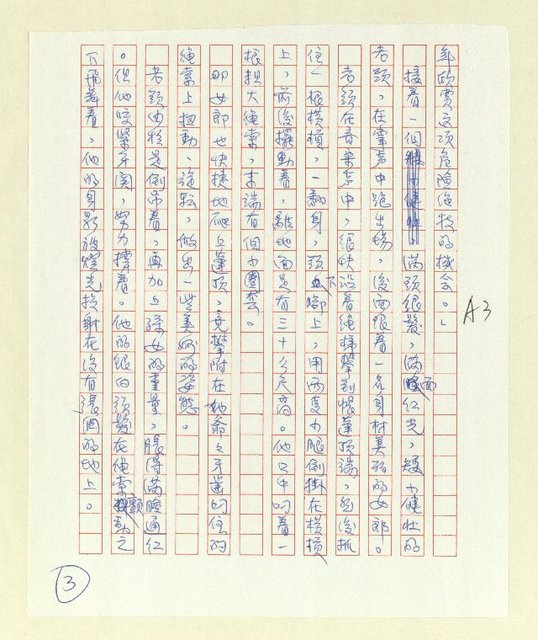 年的賣這項危險絕技的機會。」
接着一個滿頭銀髮,滿面紅光,矮小健壯的
老頭,在掌聲中跑出場,後面跟着一名身材美好的女郎。
老頭在音樂聲中,很快沿着繩梯攀到帳蓬頂端,然後抓
住一根橫槓,一翻身,頭下腳上,用兩支小腿倒掛在橫槓
上,前後擺動着,離地面足有三十公尺高。他口中叼着一
根担大繩索,末端有個小圈套。
那女郎也快捷地爬上蓬頂,竟攀附在她爺爺牙齒叼住的
繩索上扭動,旋転,做出一些美妙的姿態。
老頭由於是倒吊着,再加上孫女的重量,脹得滿臉通紅
。但他咬緊牙関,努力撐着。他的銀白頭髮在繩索顫動之
下飛舞着,他的身影被燈光投射在沒有張網的地上。
A3
3